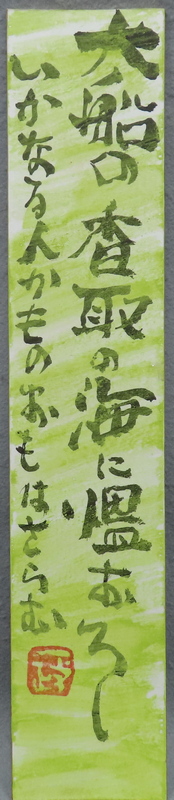 大船の香取の海に慍おろし
いかなる人かもの於もはさらむ